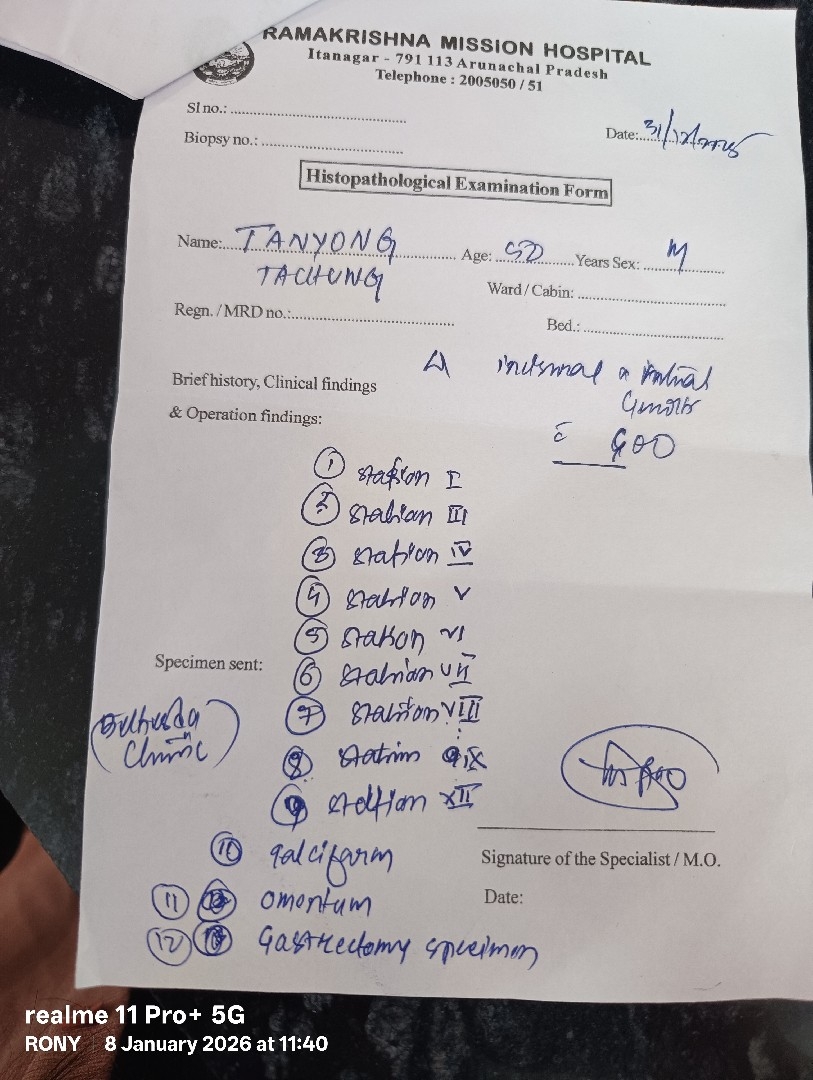 RAMAKRISHNA MISSION HOSPITAL
Itanagar - 791 113 Arunachal Pradesh
Telephone : 2005050 / 51
Sl no.:
Date: 31/12/2025
Biopsy no.:
Histopathological Examination Form
Name: TANYONG Age: 50 Years Sex: M
TACHUNG
Ward / Cabin:
Regn. / MRD no.:
Bed.:
Brief history, Clinical findings
& Operation findings:
GOO
① station I
② station III
③ station IV
④ station V
⑤ station VI
Specimen sent: ⑥ station VII
⑦ station VIII
Clinic
⑧ station IX
⑨ station XII
⑩ falciform
Signature of the Specialist / M.O.
⑪ omentum
Date:
⑫ Gastrectomy specimen
realme 11 Pro+ 5G
RONY | 8 January 2026 at 11:40